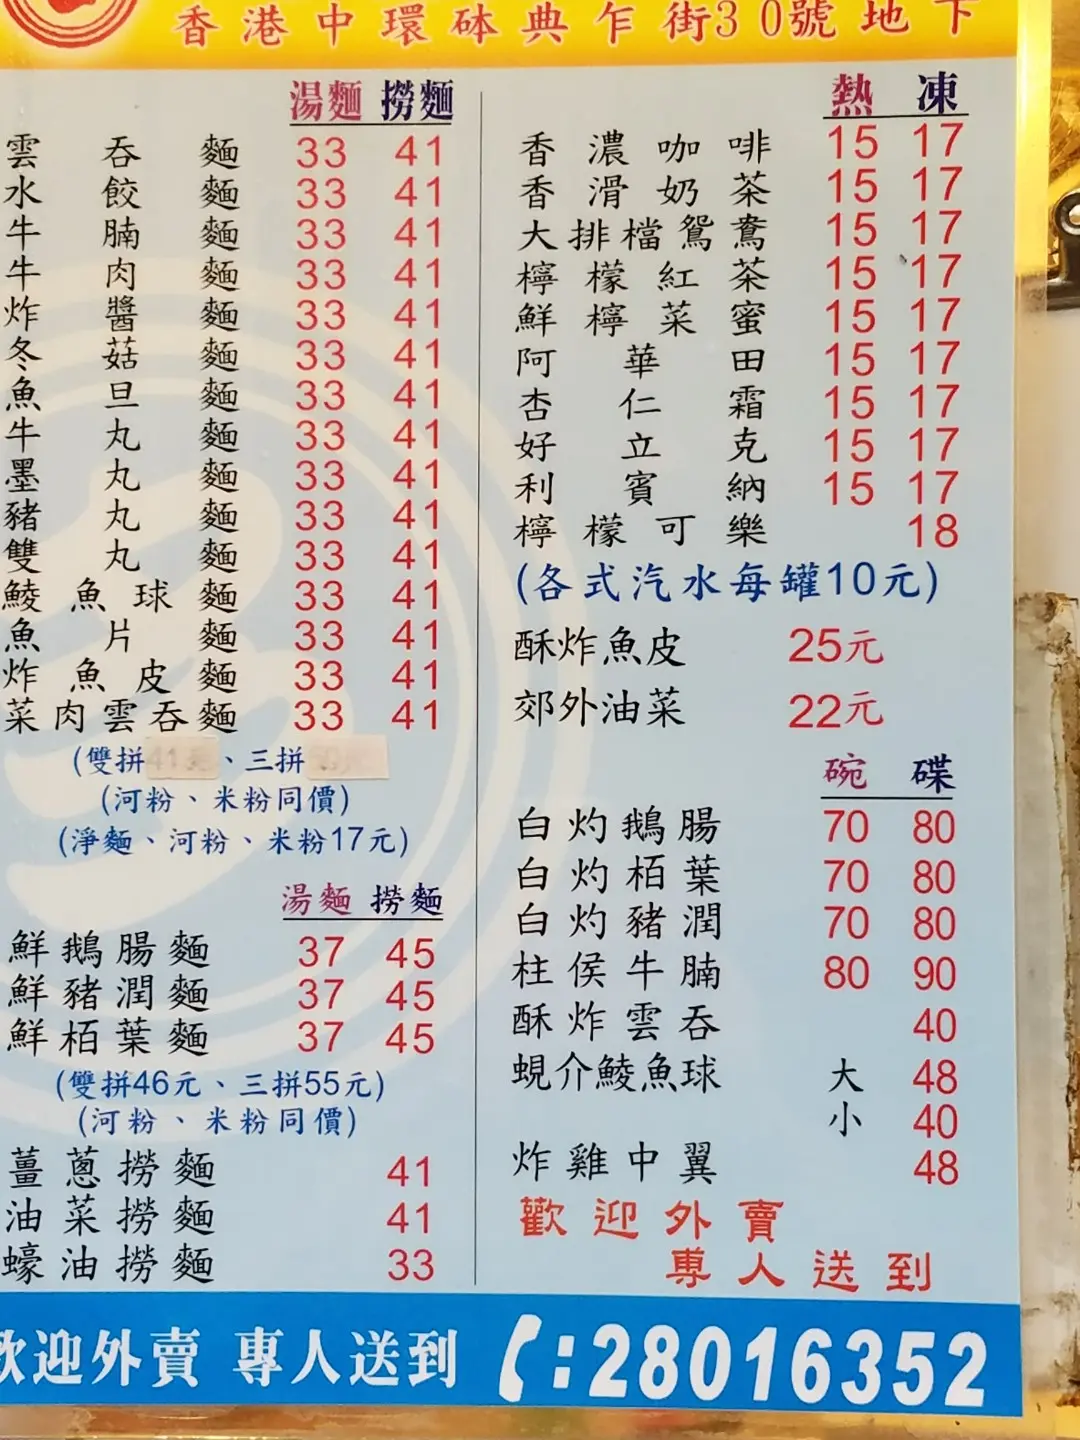 香港中環砵典乍街30號地下
湯麵 撈麵
雲吞麵 33 41
水餃麵 33 41
牛腩麵 33 41
牛肉麵 33 41
炸醬麵 33 41
冬菇麵 33 41
魚旦麵 33 41
牛丸麵 33 41
墨丸麵 33 41
豬丸麵 33 41
雙丸麵 33 41
鯪魚球麵 33 41
魚片麵 33 41
炸魚皮麵 33 41
菜肉雲吞麵 33 41
(雙拼、三拼
(河粉、米粉同價)
(淨麵、河粉、米粉17元)
湯麵 撈麵
鮮鵝腸麵 37 45
鮮豬潤麵 37 45
鮮栢葉麵 37 45
(雙拼46元、三拼55元)
(河粉、米粉同價)
薑蔥撈麵 41
油菜撈麵 41
蠔油撈麵 33
熱 凍
香濃咖啡 15 17
香滑奶茶 15 17
大排檔鴛鴦 15 17
檸檬紅茶 15 17
鮮檸菜蜜 15 17
阿華田 15 17
杏仁霜 15 17
好立克 15 17
利賓納 15 17
檸檬可樂 18
(各式汽水每罐10元)
酥炸魚皮 25元
郊外油菜 22元
碗 碟
白灼鵝腸 70 80
白灼栢葉 70 80
白灼豬潤 70 80
柱侯牛腩 80 90
酥炸雲吞 40
蜆介鯪魚球 大 48
小 40
炸雞中翼 48
歡迎外賣
專人送到
歡迎外賣 專人送到 :28016352